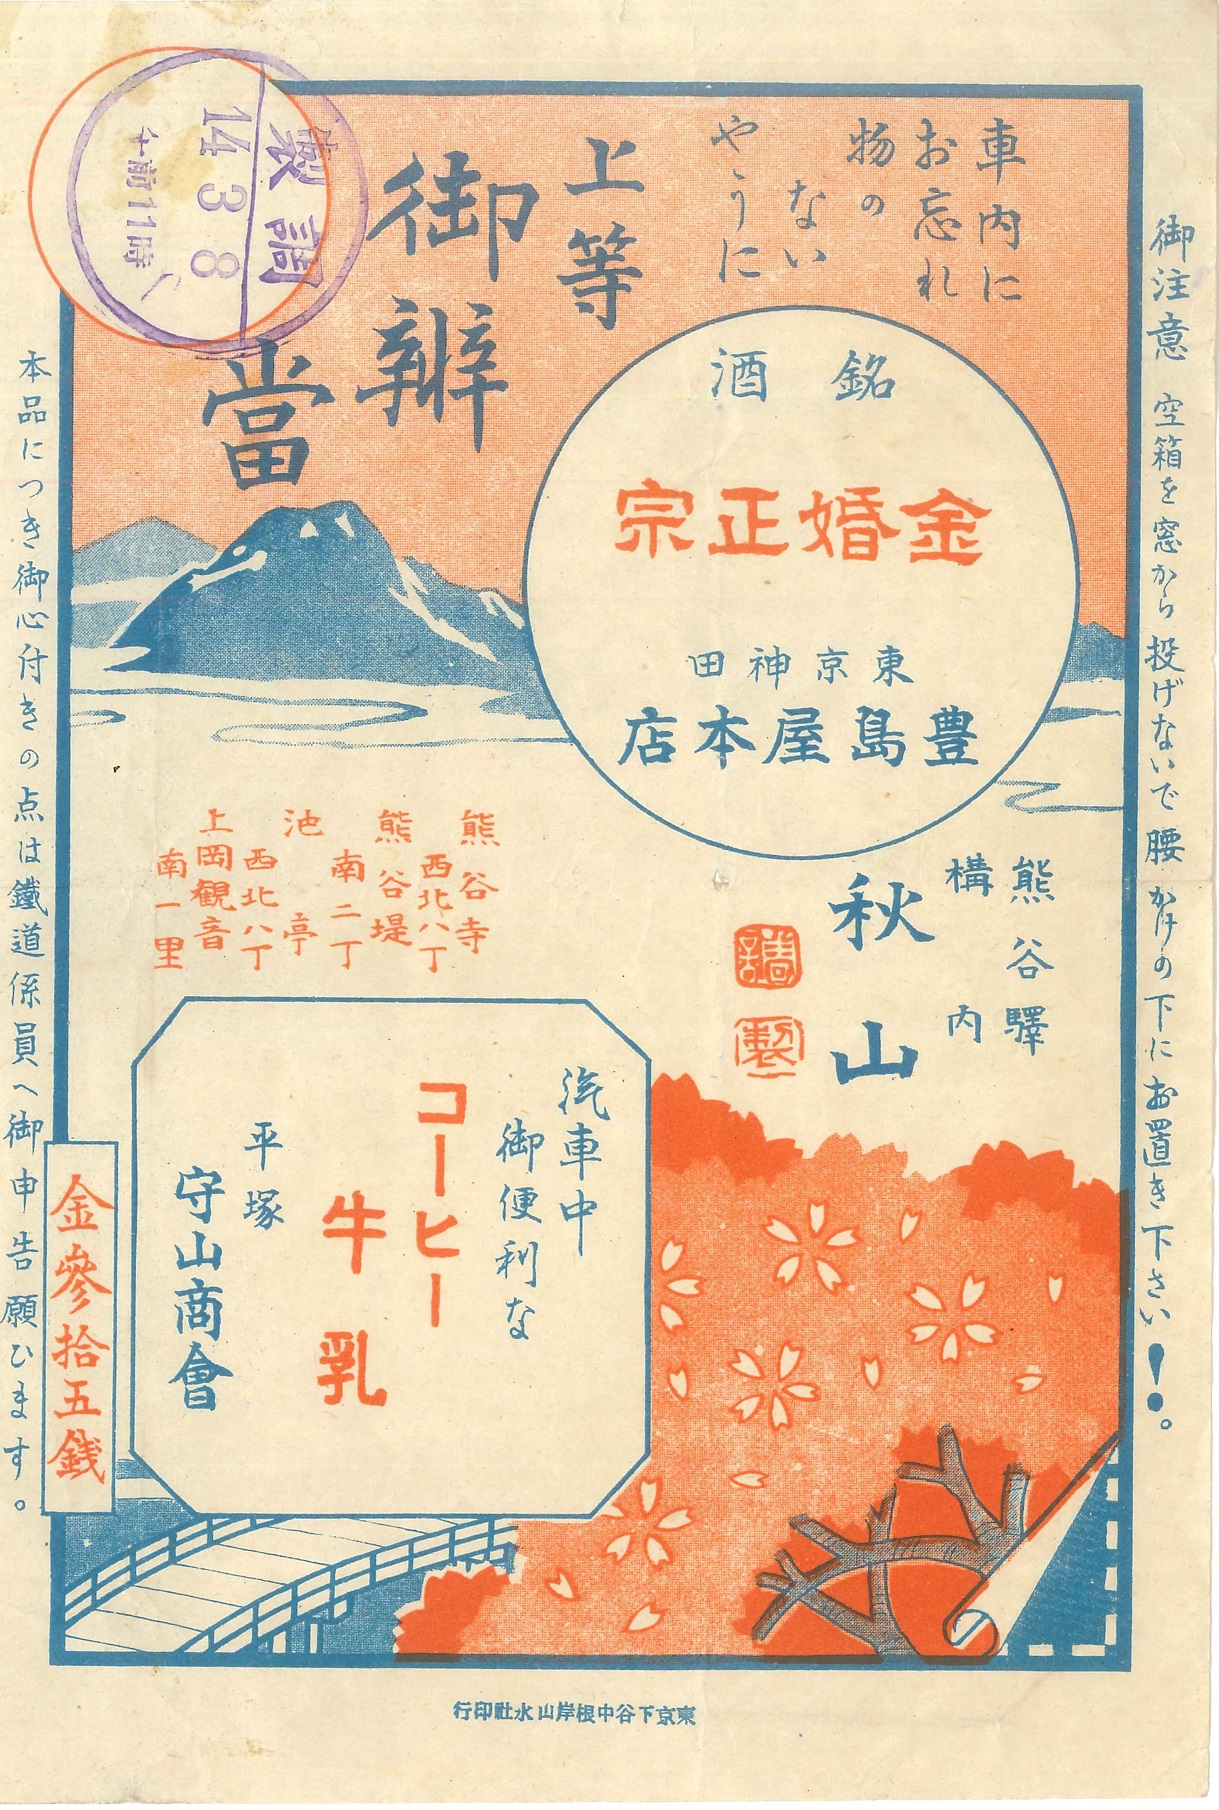 御注意 空箱を窓から投げないで腰かけの下にお置き下さい!。
車内に
お忘れ
物の
ない
やうに
上等
御辨當
調製
14 3 8
午前11時
銘酒
金婚正宗
東京神田
豊島屋本店
熊谷驛
構内
秋山
調製
熊谷寺
西北八丁
熊谷堤
南二丁
池亭
西北八丁
上岡観音
南一里
汽車中
御便利な
コーヒー
牛乳
平塚
守山商會
金參拾五銭
本品につき御心付きの点は鐵道係員へ御申告願ひます。
東京下谷中根岸山水社印行